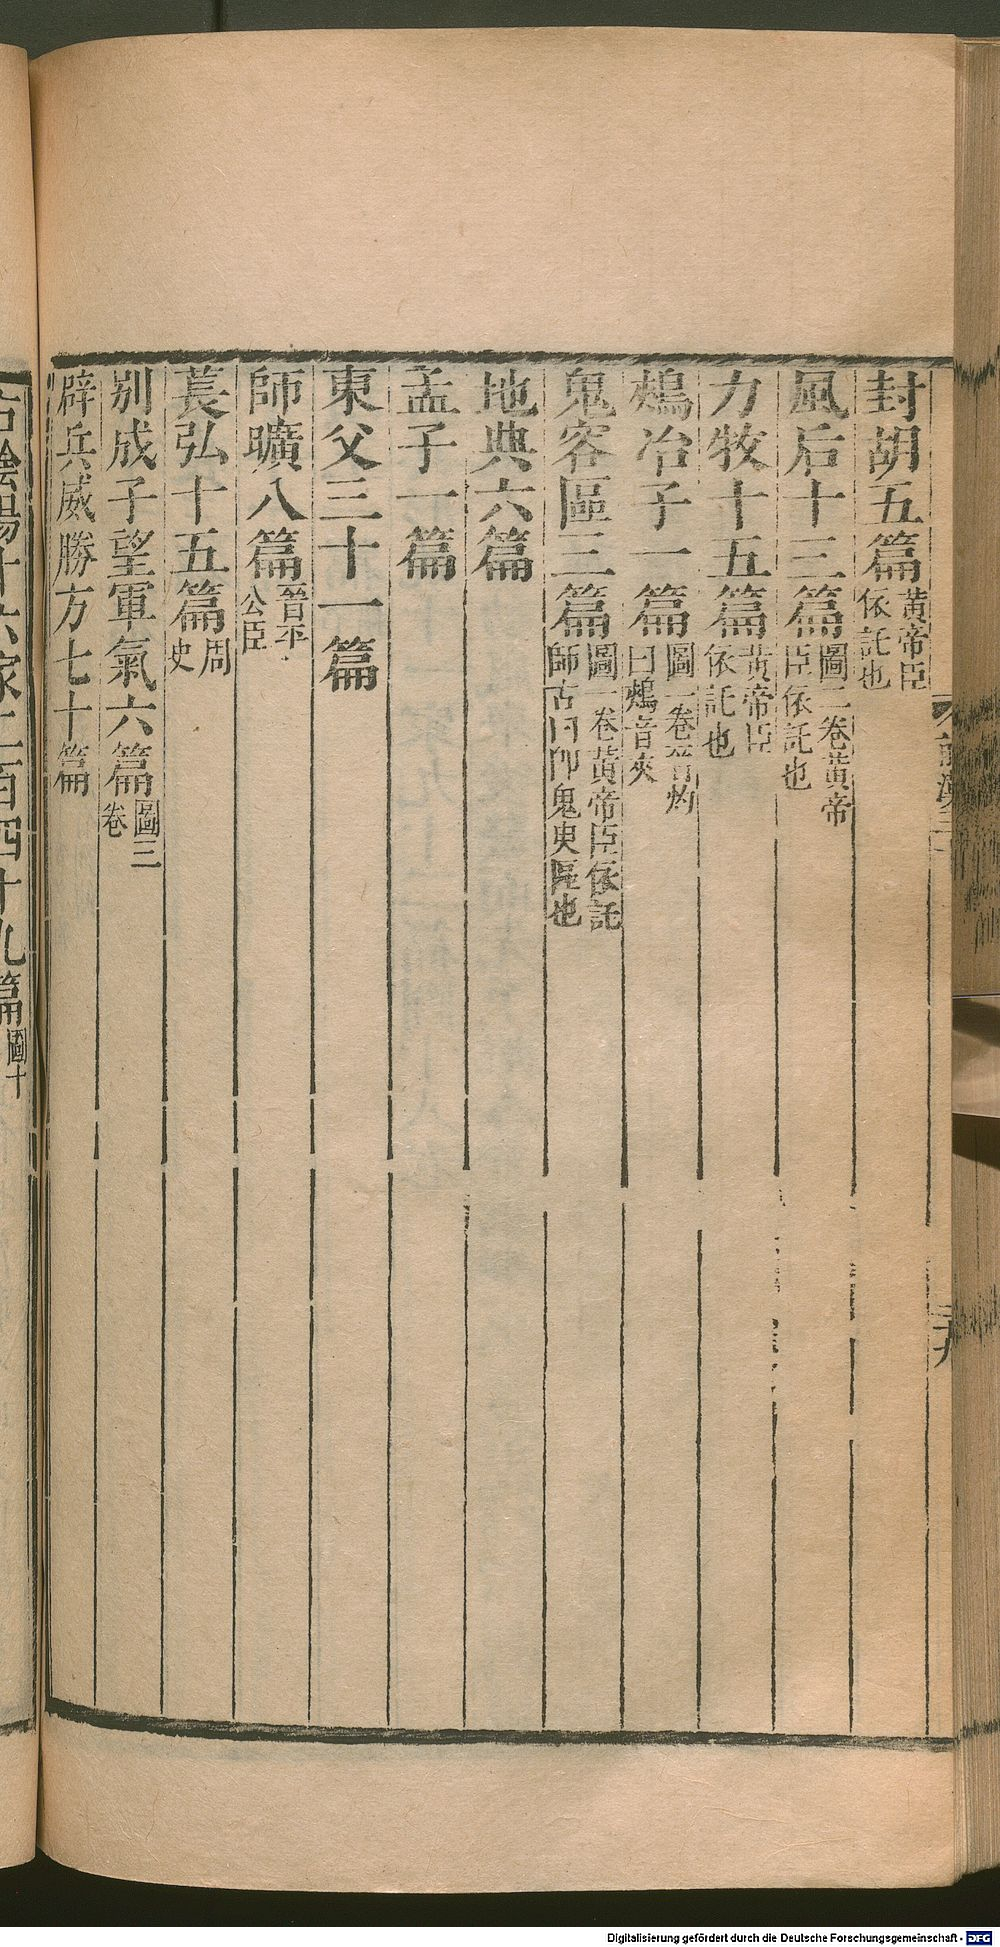 封胡五篇黃帝臣依託也
風后十三篇圖二卷黃帝臣依託也
力牧十五篇黃帝臣依託也
鵊冶子一篇圖一卷晉灼曰鵊音夾
鬼容區三篇圖一卷黃帝臣依託師古曰卽鬼臾區也
地典六篇
孟子一篇
東父三十一篇
師曠八篇晉平公臣
萇弘十五篇周史
別成子望軍氣六篇圖三卷
辟兵威勝方七十篇
右陰陽十六家二百四十九篇圖十
Digitalisierung gefördert durch die Deutsche Forschungsgemeinschaft - DFG